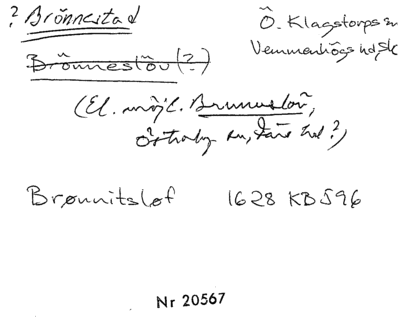 ? Brönnestad Ö. Klagstorps sn
Brönneslöv (?) Vemmenhögs hd, Sk
(El. möjl. Brunnslöv,
Östraby sn, Färs hd?)
Brønnitsløf 1628 KB 596
Nr 20567